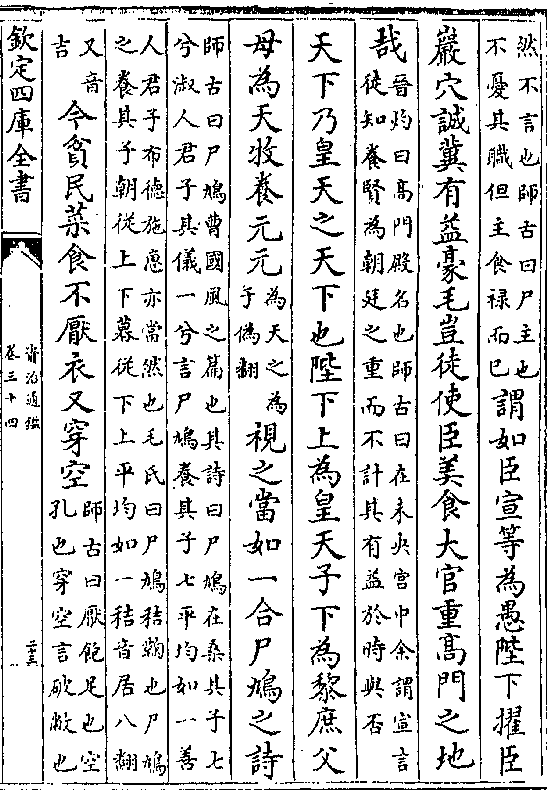 然不言也師古曰尸主也
不憂其職但主食禄而已
謂如臣宣等為愚陛下擢臣
巖穴誠冀有益豪毛豈徒使臣美食大官重髙門之地
哉
晉灼曰髙門殿名也師古曰在未央宫中余謂宣言
徒知養賢為朝廷之重而不計其有益於時與否
天下乃皇天之天下也陛下上為皇天子下為黎庶父
母為天牧養元元
為天之為
于偽翻
視之當如一合尸鳩之詩
師古曰尸鳩曹國風之篇也其詩曰尸鳩在桑其子七
兮淑人君子其儀一兮言尸鳩養其子七平均如一善
人君子布德施惠亦當然也毛氏曰尸鳩秸鞠也尸鳩
之養其子朝從上下暮從下上平均如一秸音居八翻
又音
吉
今貧民菜食不厭衣又穿空
師古曰厭飽足也空
孔也穿空言破敝也
欽定四庫全書
資治通鑑
卷三十四